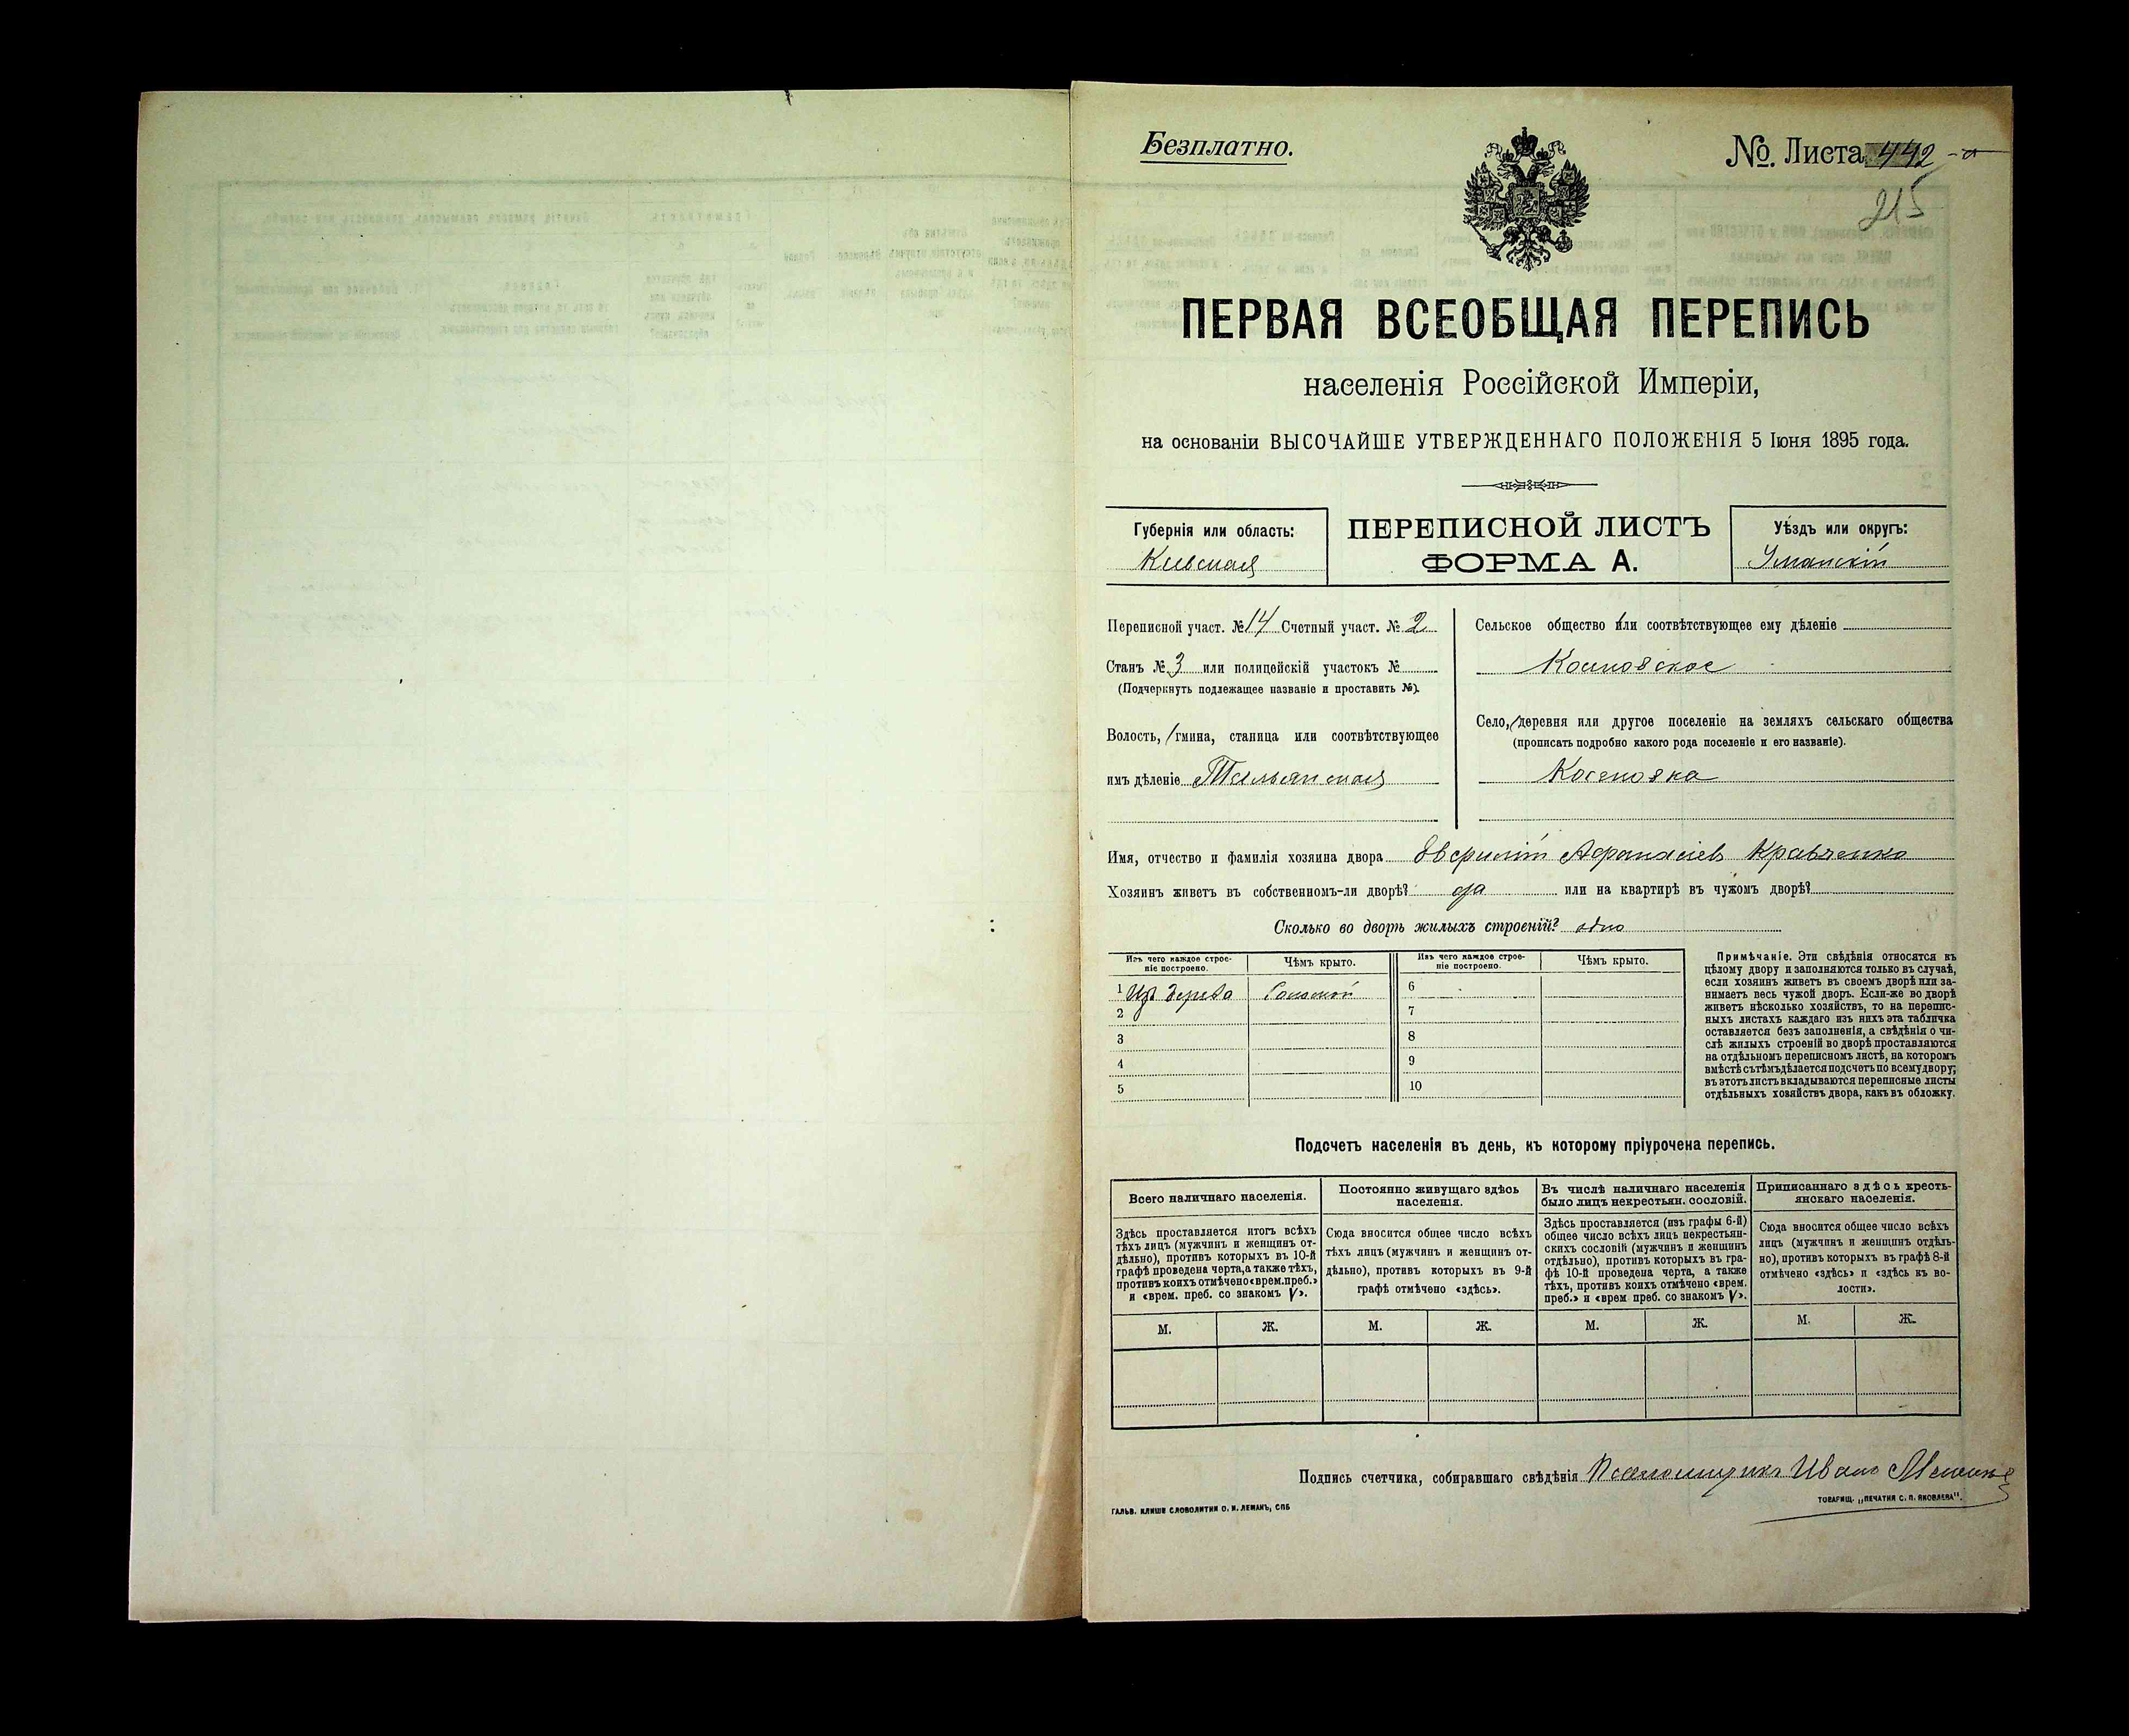 Безплатно.
№. Листа 442-а
215
ПЕРВАЯ ВСЕОБЩАЯ ПЕРЕПИСЬ
населенія Россійской Имперіи,
на основаніи ВЫСОЧАЙШЕ УТВЕРЖДЕННАГО ПОЛОЖЕНІЯ 5 Іюня 1895 года.
Губернія или область:
Кіевская
ПЕРЕПИСНОЙ ЛИСТЪ
ФОРМА А.
Уѣздъ или округъ:
Уманскій
Переписной участ. № 14 Счетный участ. № 2
Станъ № 3 или полицейскій участокъ №
(Подчеркнуть подлежащее названіе и проставить №).
Волость, гмина, станица или соотвѣтствующее
имъ дѣленіе Тальянская
Сельское общество или соотвѣтствующее ему дѣленіе
Косеновское
Село, деревня или другое поселеніе на земляхъ сельскаго общества
(прописать подробно какого рода поселеніе и его названіе).
Косеновка
Имя, отчество и фамилія хозяина двора Афанасіевъ Кравченко
Хозяинъ живетъ въ собственномъ-ли дворѣ? да или на квартирѣ въ чужомъ дворѣ?
Сколько во дворѣ жилыхъ строеній? одно
Изъ чего каждое строе-
ніе построено.
Чѣмъ крыто.
Изъ чего каждое строе-
ніе построено.
Чѣмъ крыто.
1 Изъ дерева Соломой
2
3
4
5
6
7
8
9
10
Примѣчаніе. Эти свѣдѣнія относятся къ
цѣлому двору и заполняются только въ случаѣ,
если хозяинъ живетъ въ своемъ дворѣ или за-
нимаетъ весь чужой дворъ. Если-же во дворѣ
живетъ нѣсколько хозяйствъ, то на перепис-
ныхъ листахъ каждаго изъ нихъ эта табличка
оставляется безъ заполненія, а свѣдѣнія о чи-
слѣ жилыхъ строеній во дворѣ проставляются
на отдѣльномъ переписномъ листѣ, на которомъ
вмѣстѣ съ тѣмъ дѣлается подсчетъ по всему двору;
въ этотъ листъ вкладываются переписные листы
отдѣльныхъ хозяйствъ двора, какъ въ обложку.
Подсчетъ населенія въ день, къ которому пріурочена перепись.
Всего наличнаго населенія.
Здѣсь проставляется итогъ всѣхъ
тѣхъ лицъ (мужчинъ и женщинъ от-
дѣльно), противъ которыхъ въ 10-й
графѣ проведена черта, а также тѣхъ,
противъ коихъ отмѣчено «врем. преб.»
и «врем. преб. со знакомъ V».
Постоянно живущаго здѣсь
населенія.
Сюда вносится общее число всѣхъ
тѣхъ лицъ (мужчинъ и женщинъ от-
дѣльно), противъ которыхъ въ 9-й
графѣ отмѣчено «здѣсь».
Въ числѣ наличнаго населенія
было лицъ некрестьян. сословій.
Здѣсь проставляется (изъ графы 6-й)
общее число всѣхъ лицъ некрестьян-
скихъ сословій (мужчинъ и женщинъ
отдѣльно), противъ которыхъ въ гра-
фѣ 10-й проведена черта, а также
тѣхъ, противъ коихъ отмѣчено «врем.
преб.» и «врем преб. со знакомъ V».
Приписаннаго здѣсь кресть-
янскаго населенія.
Сюда вносится общее число всѣхъ
лицъ (мужчинъ и женщинъ отдѣль-
но), противъ которыхъ въ графѣ 8-й
отмѣчено «здѣсь» и «здѣсь къ во-
лости».
М. Ж. М. Ж. М. Ж. М. Ж.
Подпись счетчика, собиравшаго свѣдѣнія Псаломщикъ Иванъ
ГАЛЬВ. КЛИШЕ СЛОВОЛИТНИ О. И. ЛЕМАНЪ, СПБ
ТОВАРИЩ. „ПЕЧАТНЯ С. П. ЯКОВЛЕВА".